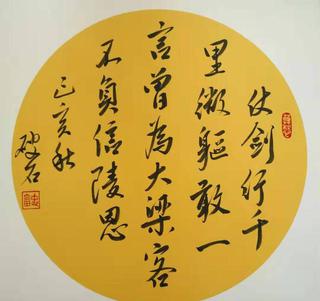 仗剑行千
里微躯敢一
言曾为大梁客
不负信陵恩
己亥秋
破石